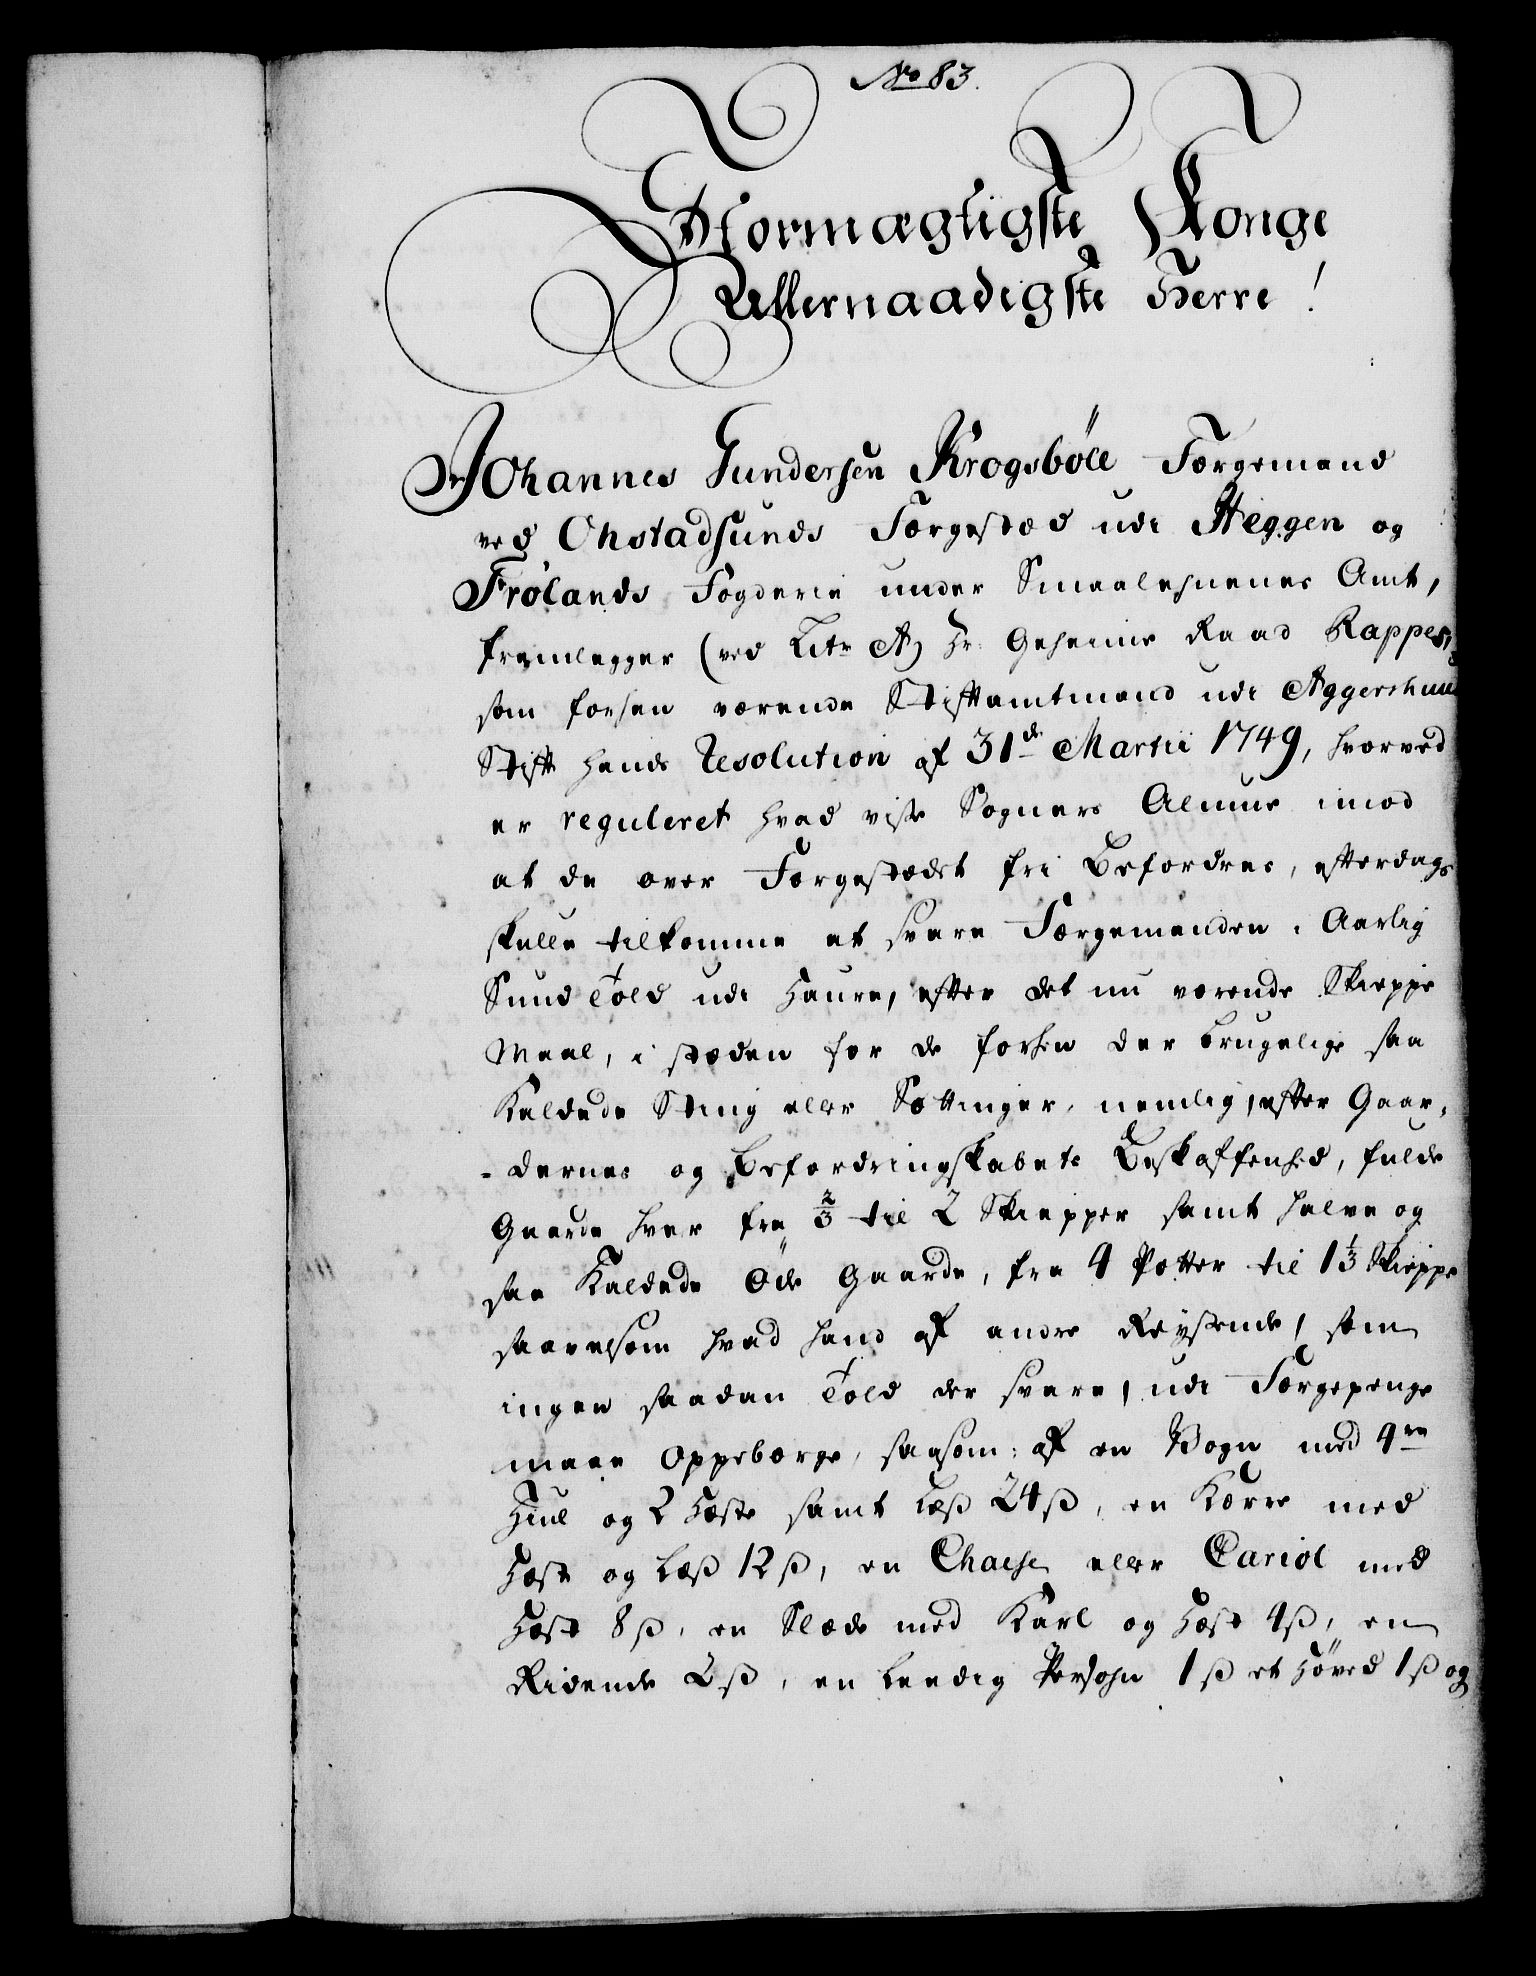 No 83.
Stormægtigste Konge
Allernaadigste Herre!
Johannes Gundersen Krogsbøll Færgemand
ved Onstadsunds Færgestæd udi Heggen og
Frølands Fogderie under Smaalehnenes Amt,
fremlegger (ved Litr A) Hr. Geheime Raad Rappes,
som forhen værende Stiftamtmand udi Aggershuus
Stift hands Resolution af 31de Martii 1749, hvorved
er reguleret hvad visse Sogners Almue imod
at de over Færgestædet frie Befordres, efterdags
skulle tilkomme at svare Færgemanden i Aarlig
Sund Told udi Haure, efter det nu værende Skieppe
Maal, i stæden for de forhen der brugelige saa
Kaldede Sting eller Sættinger, nemlig, efter Gaar-
-dernes og Befordringskabets Beskaffenhed, fulde
Gaarde hver fra 2/3 til 2 Skiepper samt halve og
saa Kaldede Öde Gaarde, fra 4 Potter til 1 1/3 Skieppe
saavelsom hvad hand af andre Reysende, som
ingen saadan Told der svare, udi Færgepenge
maae Oppebørge, saasom: af en Vogn med 4re
Hiul og 2 Heste samt Læß 24 ß, en Kærre med
Hest og Læß 12 ß, en Chaise eller Cariol med
Hest 8 ß, en Slæde med Karl og Hest 4 ß, en
Ridende 2 ß, en Leedig Persohn 1 ß et Høved 1 ß og